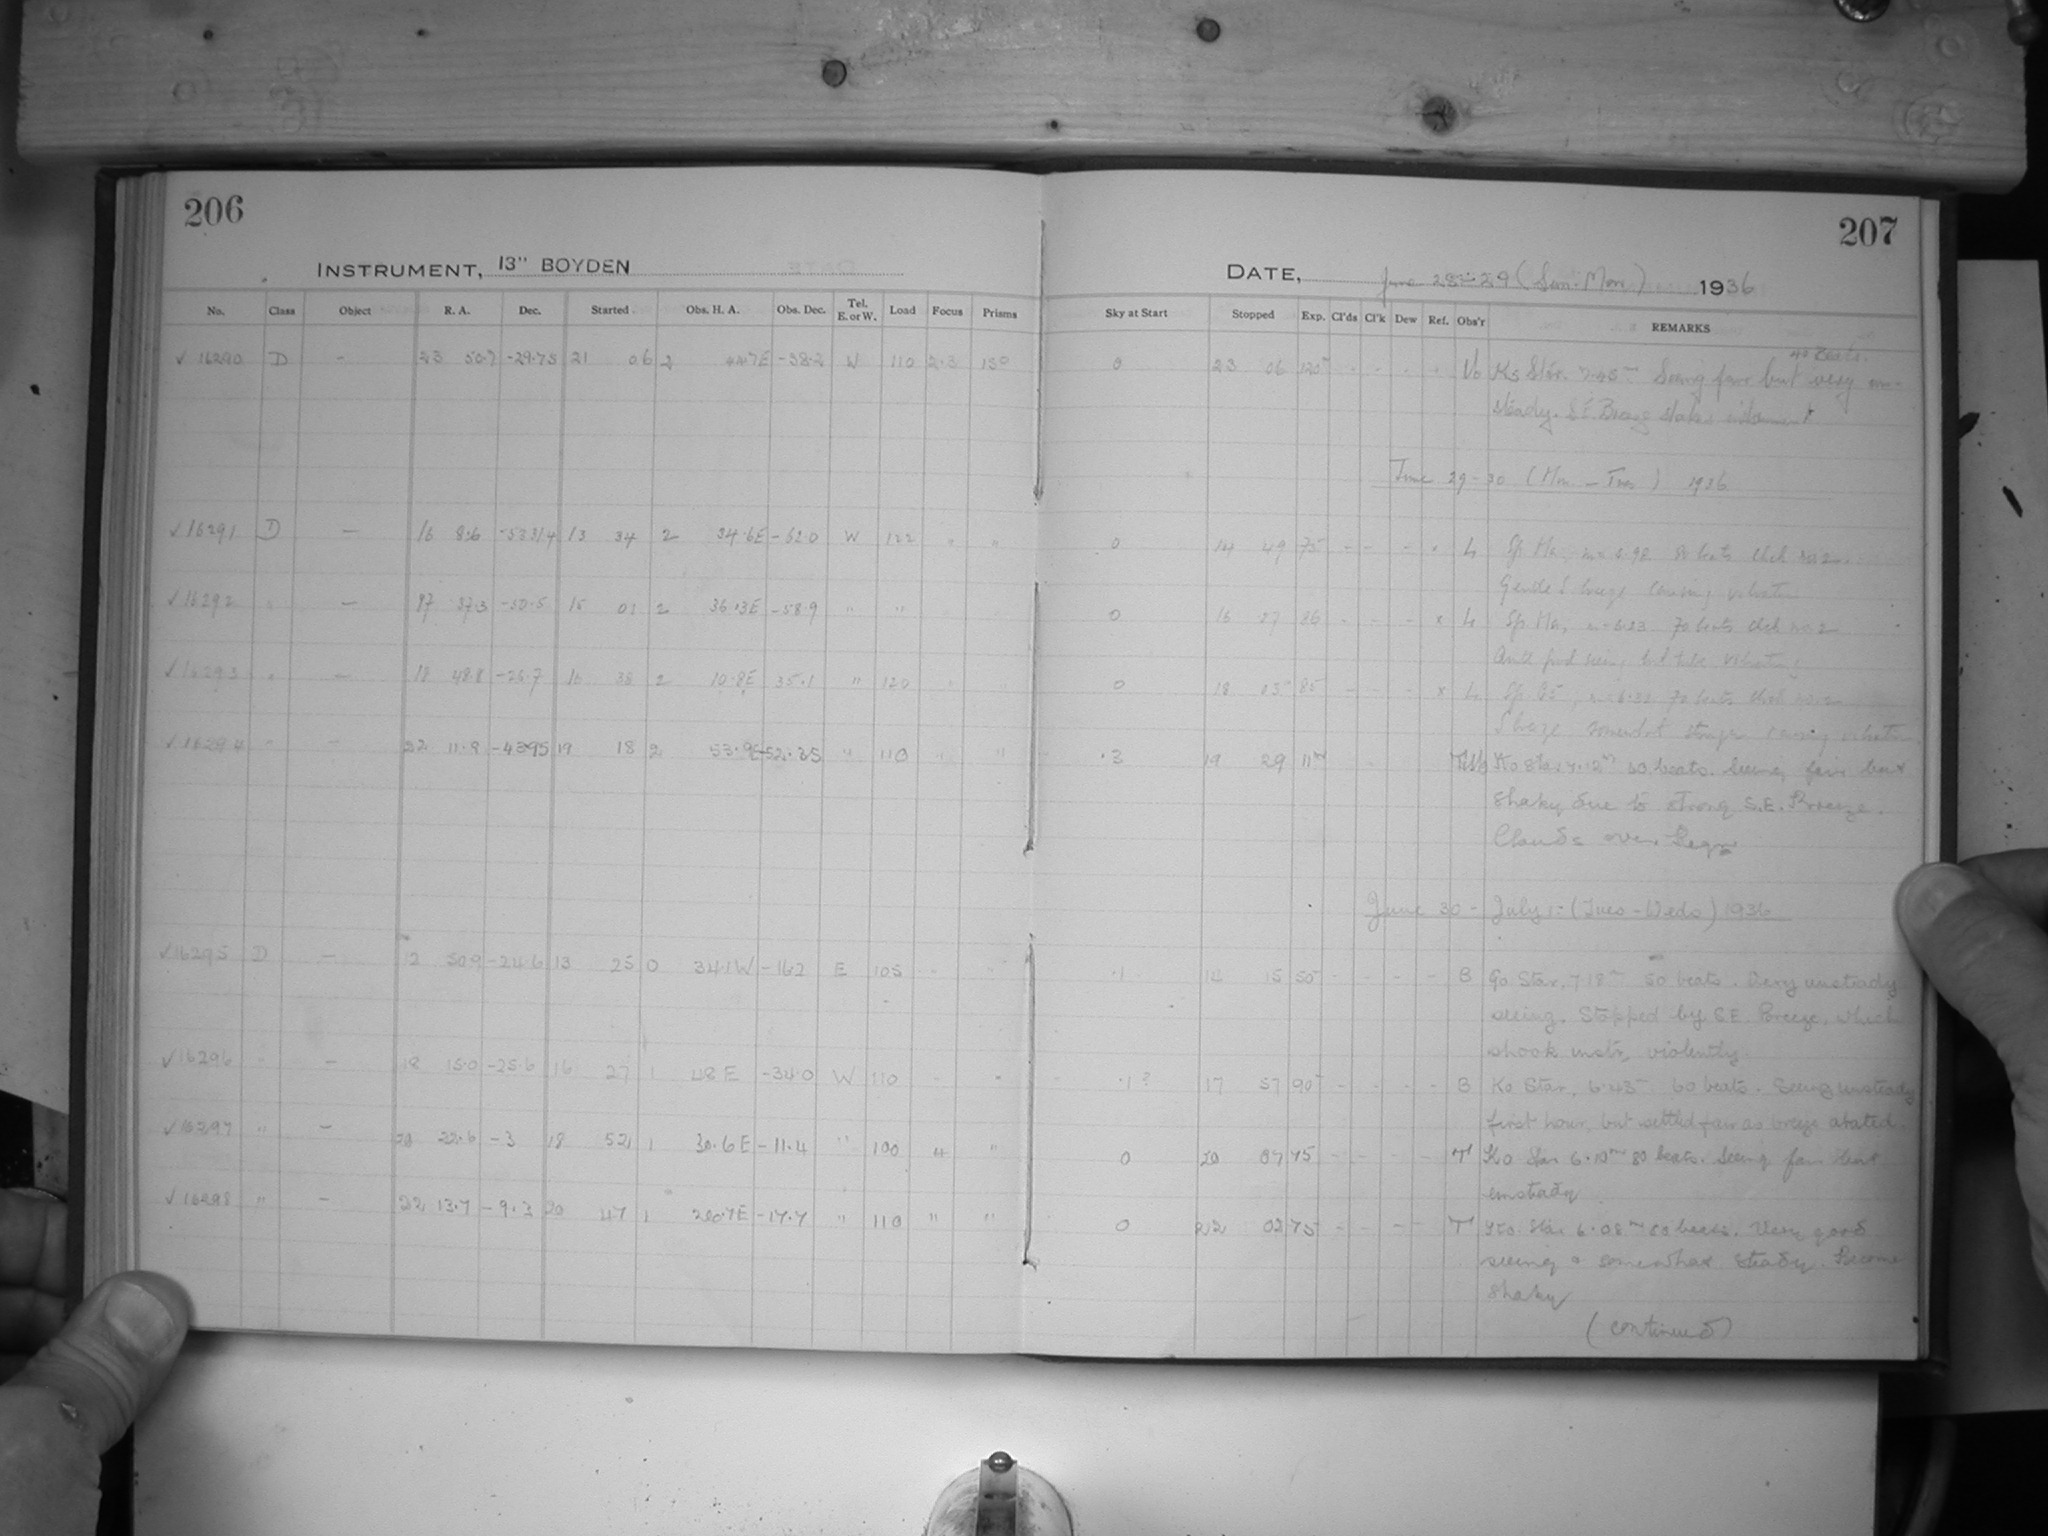 206
INSTRUMENT, 13" BOYDEN
No. Class Object R. A. Dec. Started Obs. H. A. Obs. Dec. Tel. E. or W. Load Focus Prisms
√ 16290 D - 23 50.7 -29.75 21 06 2 44.7E -38.2 W 110 2.3 150
√ 16291 D - 16 8.6 13 34 2 34.6E -62.0 W 122 " "
√ 16292 " - 17 37.3 -50.5 15 01 2 -58.9 " "
√ 16293 " - 18 48.8 -26.7 16 38 2 10.8E 35.1 " 120
√ 16294 " - 22 11.9 -43.95 19 18 2 53.9E -52.35 " 110 " "
√ 16295 D - 12 50.9 -24.6 13 25 0 34.1W -16.2 E 105 " "
√ 16296 " - 18 15.0 -25.6 16 27 1 48E -34.0 W 110 " "
√ 16297 " - 20 22.6 -3 18 52 1 30.6E -11.4 " 100 "
√ 16298 " - 22 13.7 -9.3 20 47 1 -17.7 " 110 " "
207
DATE, June 28-29 (Sun-Mon) 1936
Sky at Start Stopped Exp. Cl'ds Cl'k Dew Ref. Obs'r REMARKS
40 beats.
0 23 06 120 - - - - Vo K5 Star. 7.45m Seeing fair but very un-
steady. S.E. Breeze shakes instrument
June 29-30 (Mon - Tues) 1936
0 14 49 75 - - - x L Sp. Ma, 80 beats clock no 2.
Gentle S breeze causing vibration
0 16 27 86 - - - x L Sp. Ma, 70 beats clock no 2
seeing, vibrating
0 18 03 85 - - - x L 70 beats clock no 2
S breeze somewhat stronger causing vibration
.3 19 29 11m K0 Star 7.12m 50 beats. Seeing fair but
shaky due to strong S.E. Breeze.
Clouds over
June 30 - July 1 - (Tues - Weds) 1936
.1 14 15 50 - - - - B G0 Star, 7.18m 50 beats. Very unsteady
seeing. Stopped by S.E. Breeze, which
shook instr, violently.
.1? 17 57 90 - - - - B K0 Star, 6.43 60 beats. Seeing unsteady
first hour, but settled fair as breeze abated.
0 20 07 75 - - - - T K0 Star 6.10m 80 beats. Seeing fair but
unsteady.
0 22 02 75 - - - - T K0 Star 6.08m 60 beats. Very good
seeing & somewhat steady. Become
shaky
(continued)